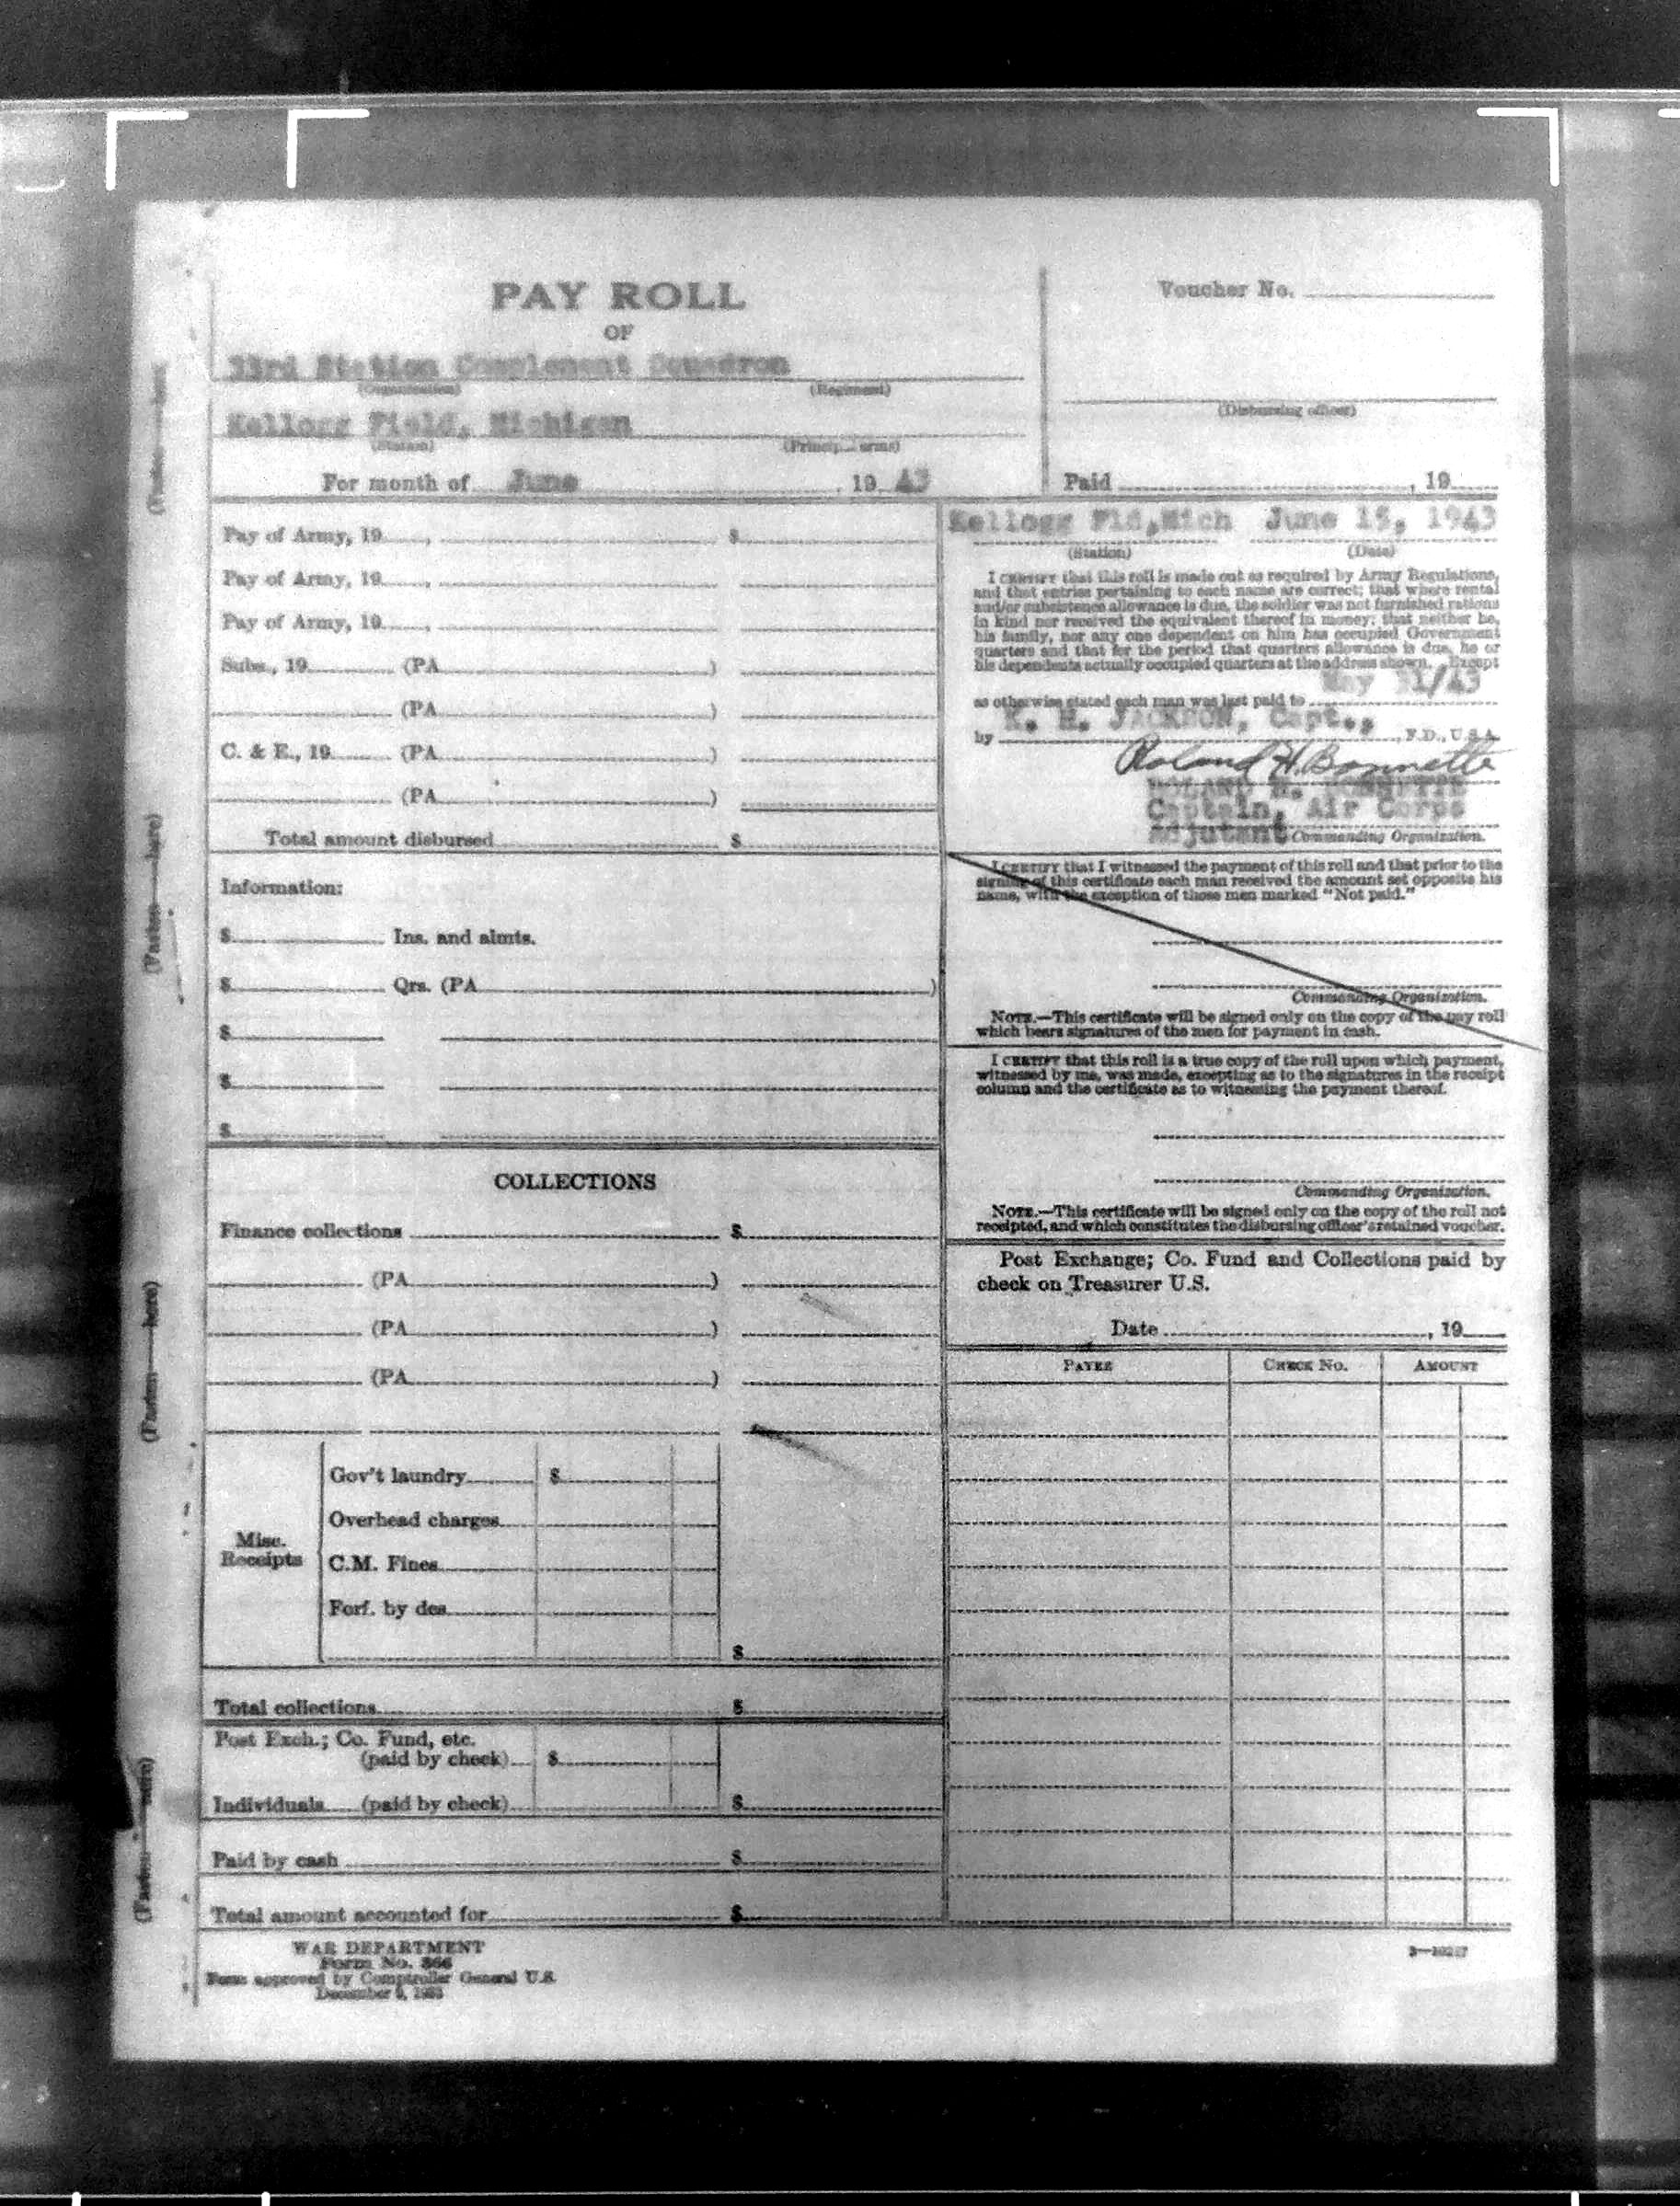 PAY ROLL
OF
33rd Station Complement Squadron
(Organization) (Regiment)
Kellogg Field, Michigan
(Station)
For month of June, 19 43
Voucher No.
(Disbursing officer)
Paid , 19
Pay of Army, 19 , $
Pay of Army, 19 ,
Pay of Army, 19 ,
Subs., 19 (PA )
(PA )
C. & E., 19 (PA )
(PA )
Total amount disbursed $
Information:
$ Ins. and almts.
$ Qrs. (PA )
$
$
$
COLLECTIONS
Finance collections $
(PA )
(PA )
(PA )
Misc. Receipts
Gov't laundry $
Overhead charges
C.M. Fines
Forf. by des
$
Total collections $
Post Exch.; Co. Fund, etc.
(paid by check) $
Individuals (paid by check) $
Paid by cash $
Total amount accounted for $
WAR DEPARTMENT
Form No. 366
Form approved by Comptroller General U.S.
Kellogg Fld, Mich June 15, 1943
(Station) (Date)
I CERTIFY that this roll is made out as required by Army Regulations,
and that entries pertaining to each name are correct; that where rental
and/or subsistence allowance is due, the soldier was not furnished rations
in kind nor received the equivalent thereof in money; that neither he,
his family, nor any one dependent on him has occupied Government
quarters and that for the period that quarters allowance is due, he or
his dependents actually occupied quarters at the address shown. Except
May 31/43
as otherwise stated each man was last paid to
by K. H. JACKSON, Capt., F.D., U.S.A.
Roland H. Bonnette
ROLAND H. BONNETTE
Captain, Air Corps
Adjutant Commanding Organization.
I CERTIFY that I witnessed the payment of this roll and that prior to the
signing of this certificate each man received the amount set opposite his
name, with the exception of those men marked "Not paid."
Commanding Organization.
NOTE.—This certificate will be signed only on the copy of the pay roll
which bears signatures of the men for payment in cash.
I CERTIFY that this roll is a true copy of the roll upon which payment,
witnessed by me, was made, excepting as to the signatures in the receipt
column and the certificate as to witnessing the payment thereof.
Commanding Organization.
NOTE.—This certificate will be signed only on the copy of the roll not
receipted, and which constitutes the disbursing officer's retained voucher.
Post Exchange; Co. Fund and Collections paid by
check on Treasurer U.S.
Date , 19
PAYEE CHECK No. AMOUNT
(Fasten here)
(Fasten here)
(Fasten here)
(Fasten here)